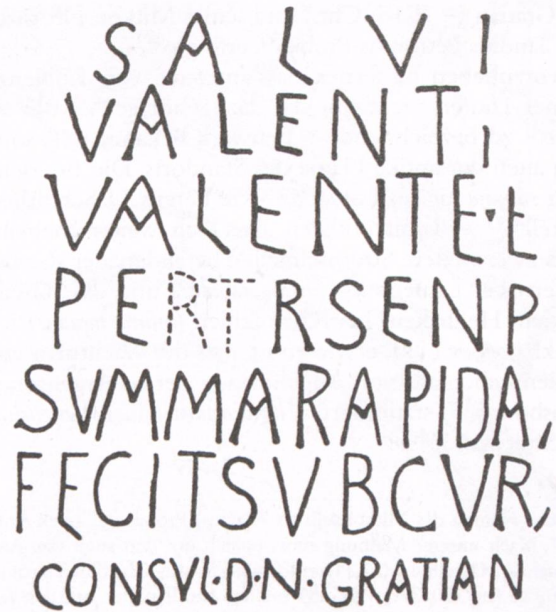 SALVI
VALENTI
VALENTE·E
PERTRSENP
SVMMARAPIDA,
FECITSVBCVR,
CONSVL·D·N·GRATIAN